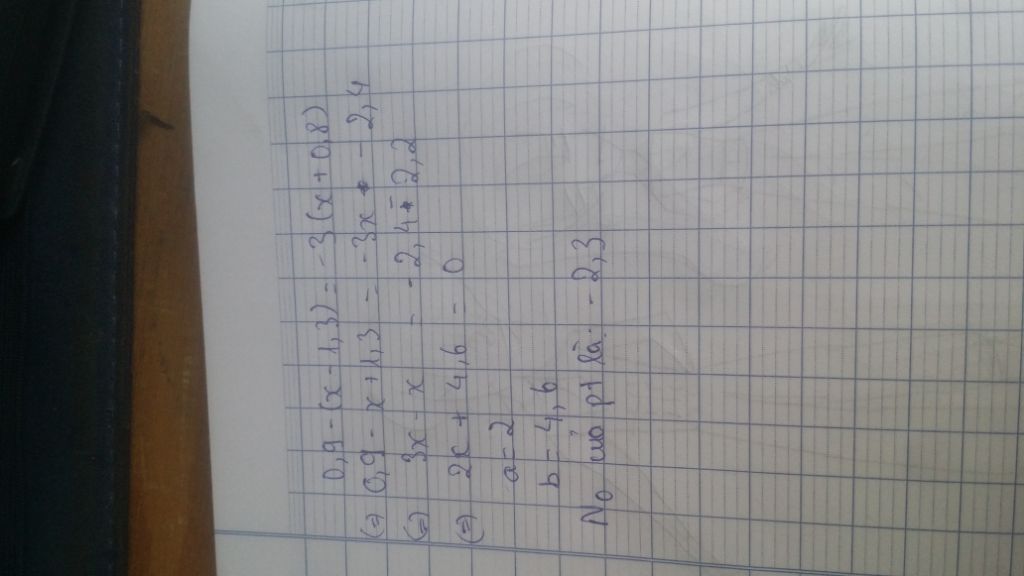 0,9 - (x - 1,3) = -3(x + 0,8)
(=) 0,9 - x + 1,3 = -3x - 2,4
(=) 3x - x = -2,4 - 2,2
(=) 2x + 4,6 = 0
a = 2
b = 4,6
No của pt là: - 2,3